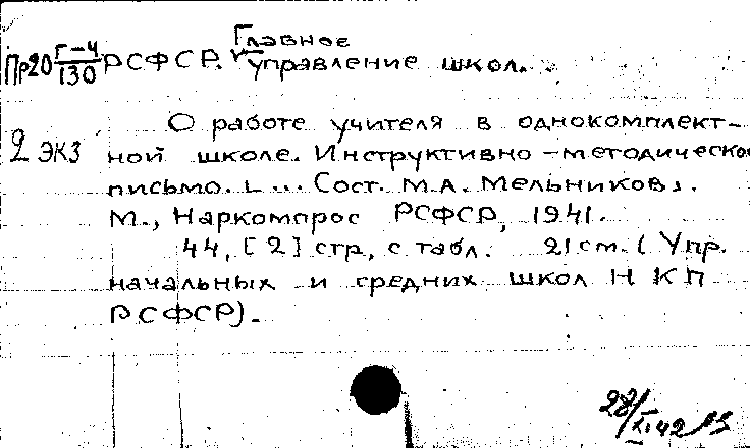 Главное
Пр20 Г-4/130 РСФСР. управление школ.
О работе учителя в однокомплект-
2 экз ной школе. Инструктивно-методическое
письмо. Сост. М.А. Мельников].
М., Наркомпрос РСФСР, 1941.
44, [2] стр, с табл. 21см. (Упр.
начальных и средних школ НКП
РСФСР).
28/XI 42